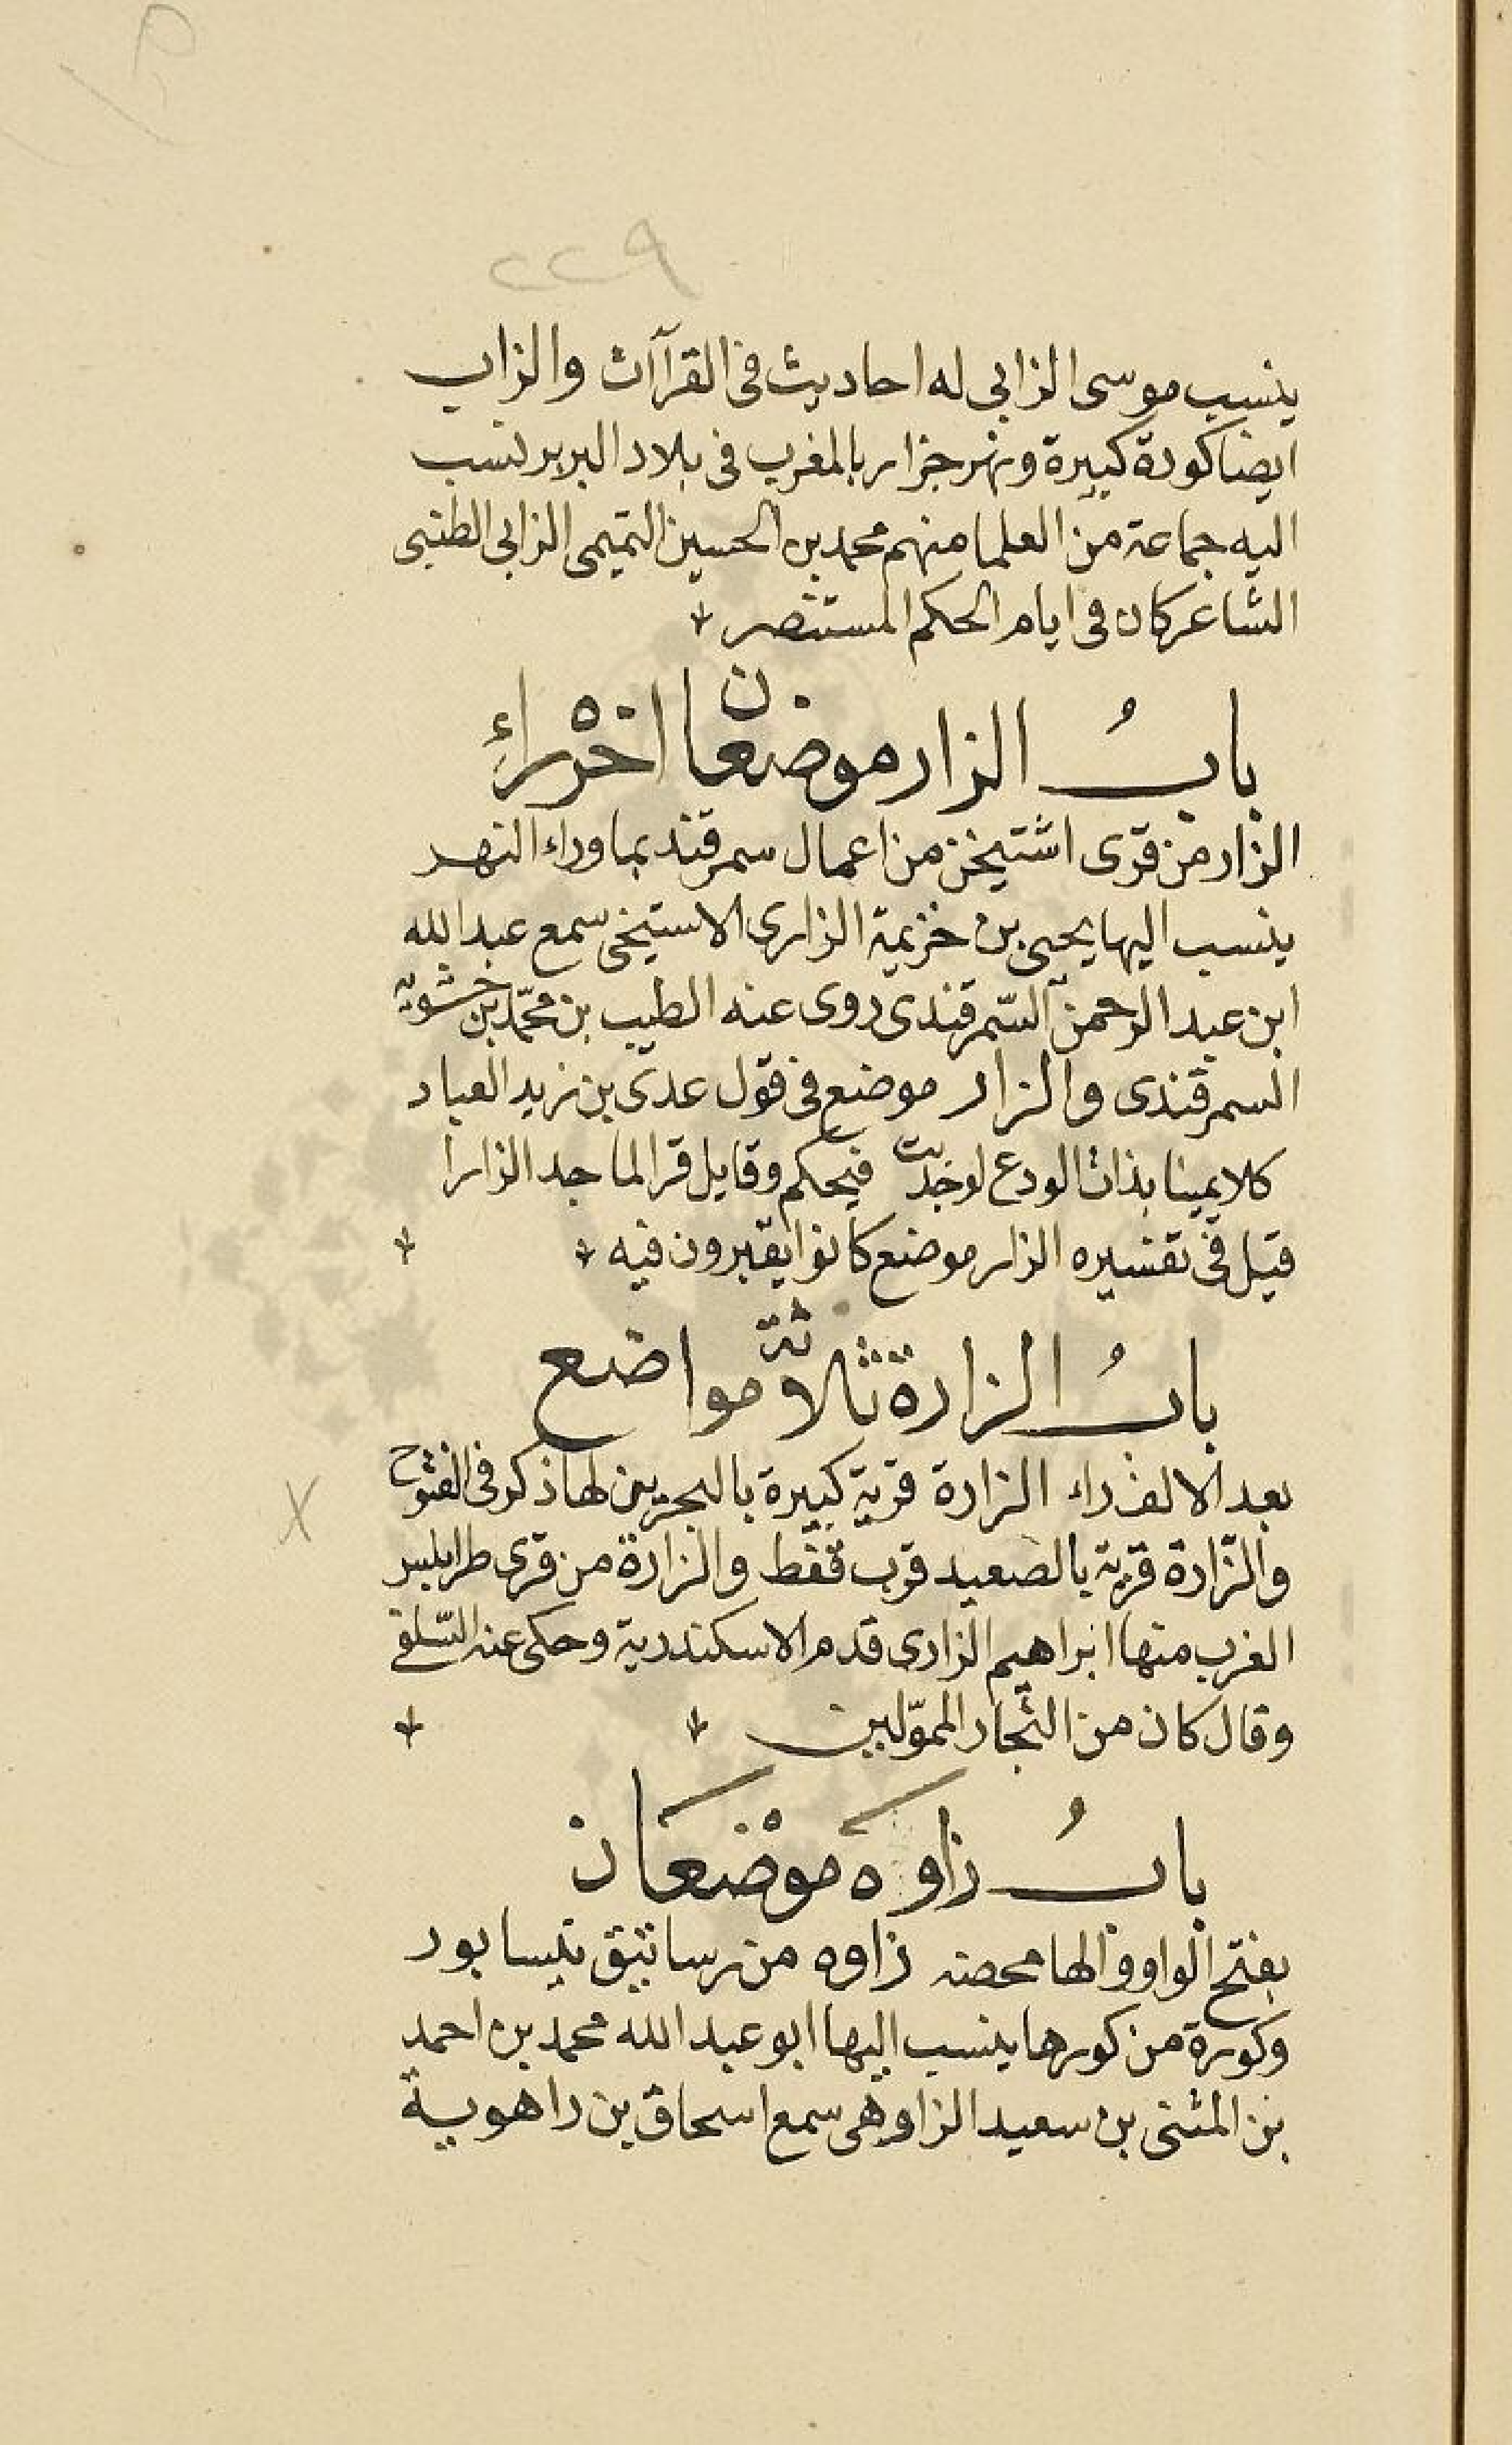 ٢٢٩
ينسب موسى الزابى له احاديث فى القراآت والزاب
ايضا كورة كبيرة ونهر جرار بالمغرب فى بلاد البربر نسب
اليه جماعة من العلما منهم محمد بن الحسين التميمى الزابى الطنبى
الشاعر كان فى ايام الحكم المستنصر
بابُ الزار موضعان اخره راء
الزار من قرى اشتيخن من اعمال سمرقند بما وراء النهر
ينسب اليها يحيى بن خزيمة الزارى الاستيخى سمع عبد الله
ابن عبد الرحمن السّمرقندى روى عنه الطيب بن محمّد بن خشويه
السمرقندى والزار موضع فى قول عدى بن زيد العباد
كلا يمينا بذات الودع لو حدثت فيحكم وقابل قبر الماجد الزارا
قيل فى تفسيره الزار موضع كانوا يقبرون فيه
بابُ الزارة ثلاثة مواضع
بعد الالف راء الزارة قرية كبيرة بالبحرين لها ذكر فى الفتوح
والزّارة قرية بالصعيد قرب قفط والزارة من قرى طرابلس
الغرب منها ابراهيم الزارى قدم الاسكندرية وحكى عنه السّلفى
وقال كان من التّجار المموّلين
بابُ زاوه موْضعان
بفتح الواو والها محضه زاوه من رساتيق نيسابور
وكورة من كورها ينسب اليها ابو عبد الله محمد بن احمد
بن المثنى بن سعيد الزاوهى سمع اسحاق بن راهوية